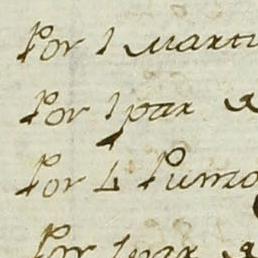 Por 1 Marti
Por 1 par d
Por 4 Punzo
Por 1 par d